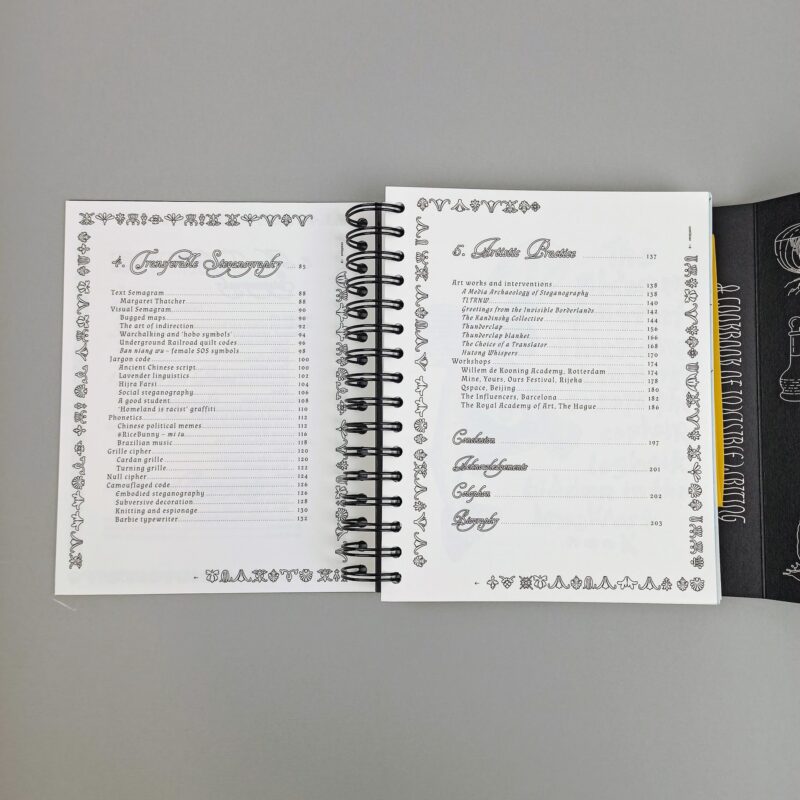 4. Transferable Steganography .... 85
Text Semagram 88
Margaret Thatcher 88
Visual Semagram 90
Bugged maps 90
The art of indirection 92
Warchalking and 'hobo symbols' 94
Underground Railroad quilt codes 96
Ban niang wu – female SOS symbols 98
Jargon code 100
Ancient Chinese script 100
Lavender linguistics 102
Hijra Farsi 104
Social steganography 106
A good student 108
'Homeland is racist' graffiti 110
Phonetics 112
Chinese political memes 112
#RiceBunny – mi tu 116
Brazilian music 118
Grille cipher 120
Cardan grille 120
Turning grille 122
Null cipher 124
Camouflaged code 126
Embodied steganography 126
Subversive decoration 128
Knitting and espionage 130
Barbie typewriter 132
5. Artistic Practice 137
Art works and interventions 138
A Media Archaeology of Steganography 138
TLTRNW 140
Greetings from the Invisible Borderlands 142
The Kandinsky Collective 144
Thunderclap 156
Thunderclap blanket 166
The Choice of a Translator 168
Hutong Whispers 170
Workshops 174
Willem de Kooning Academy, Rotterdam 174
Mine, Yours, Ours Festival, Rijeka 178
Qspace, Beijing 180
The Influencers, Barcelona 182
The Royal Academy of Art, The Hague 186
Conclusion 197
Acknowledgements 201
Colophon 202
Biography 203
A COOKBOOK OF INVISIBLE WRITING